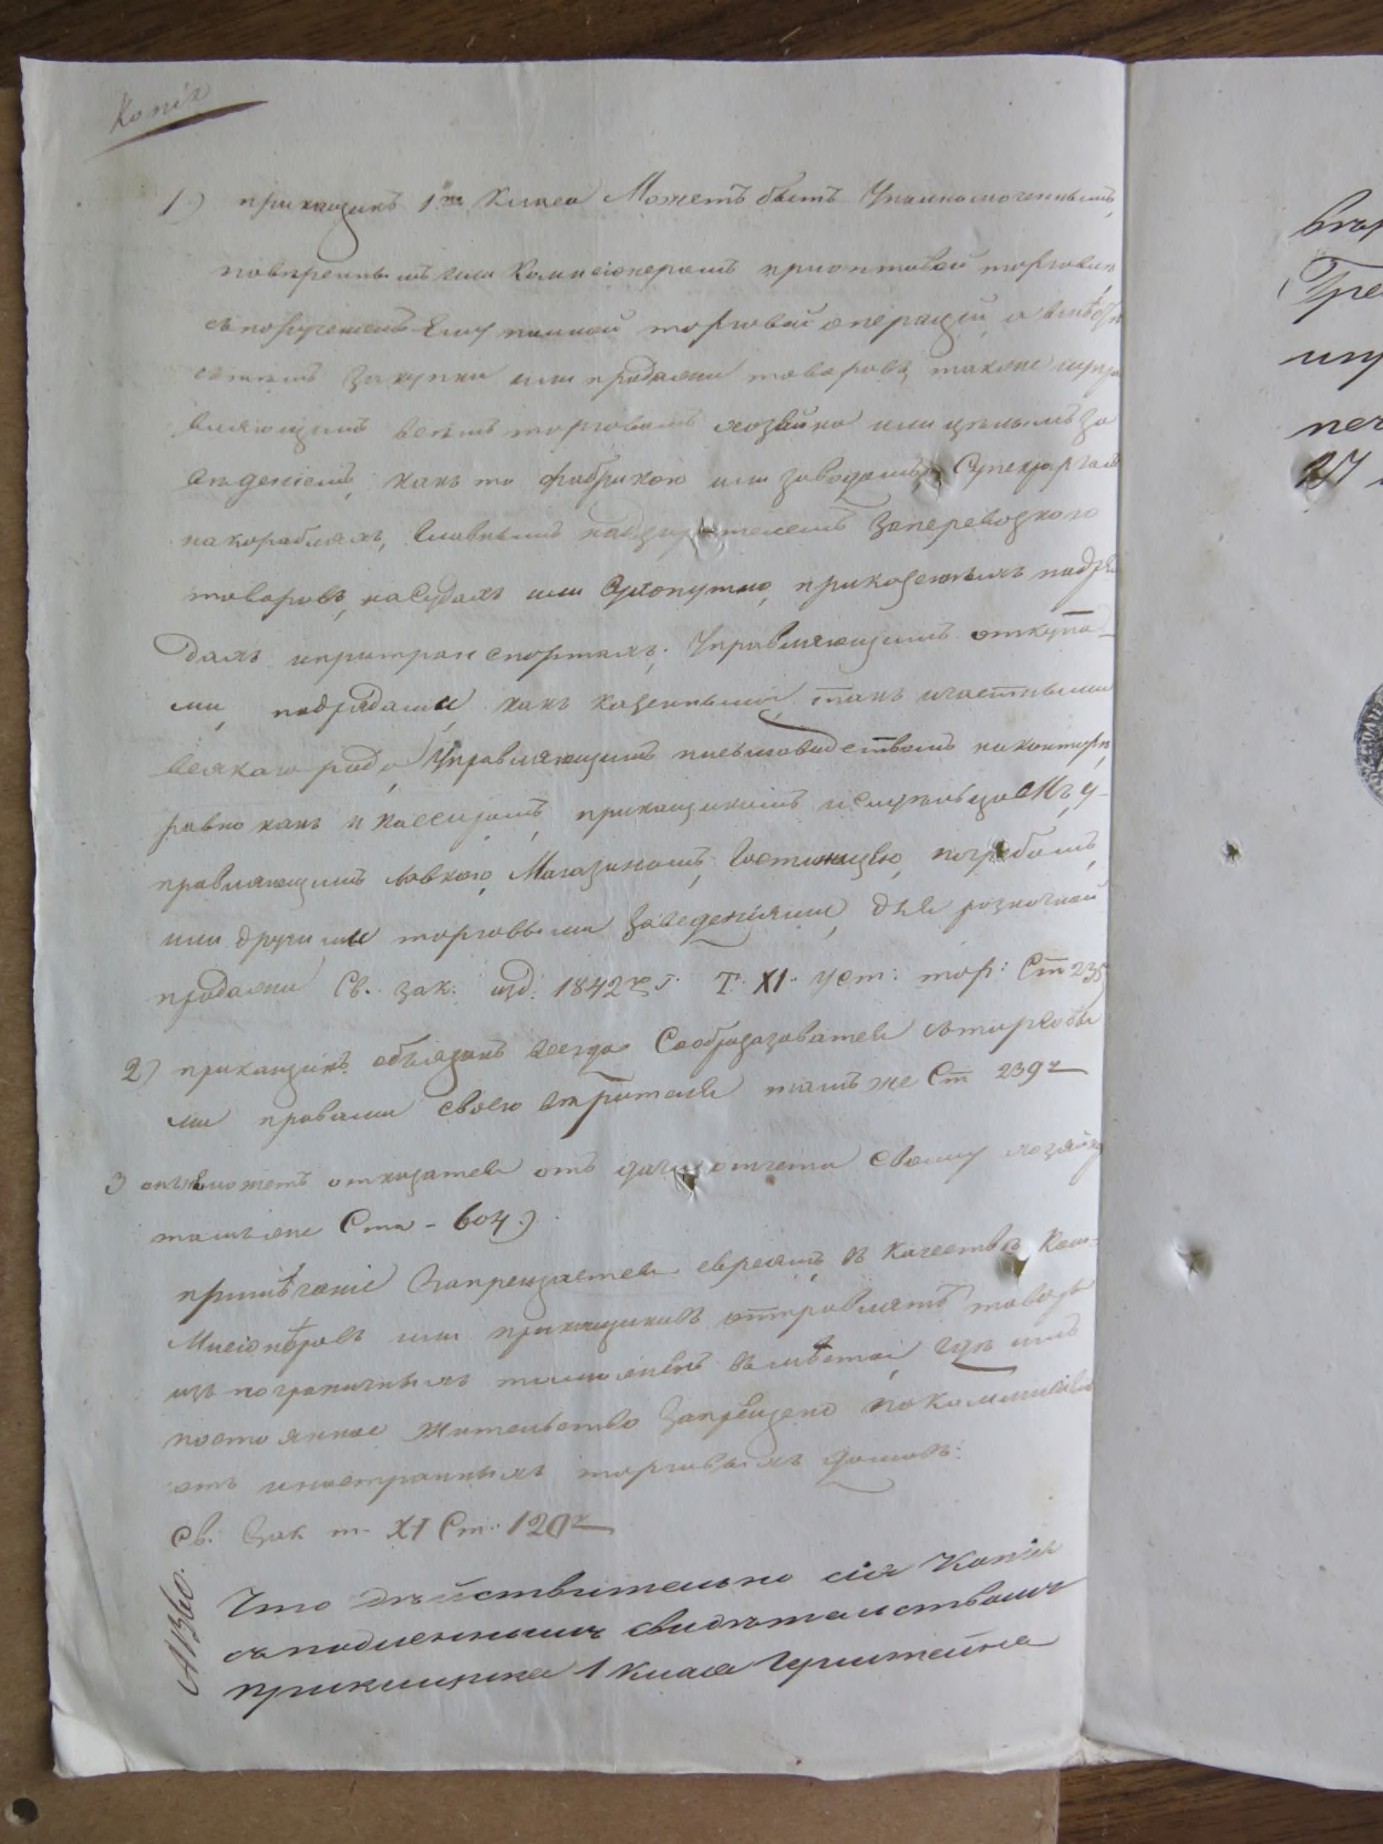 Копія
1) прикащикъ 1го Класа Можетъ быть Уполномоченнымъ,
повѣреннымъ или Комисіонеромъ приоптовой торговли
съпорученіемъ Ему полной торговой операціи, а
закупки или продажи товаровъ, также и упра
вляющимъ всѣмъ торговымъ хозяйна или цѣлымъ за
веденіемъ, какъ то фабрикою или заводомъ, Суперкаргомъ
накорабляхъ, Главнымъ надзирателемъ Заперевозкою
товаровъ, насудахъ или Сухопутно, приказенныхъ подря
дахъ ипритранспортахъ; Управляющимъ откупа-
ми, подрядами, какъ казенными, такъ ичастными
всякаго рода, Управляющимъ письмоводствомъ наконторѣ,
равно какъ и кассиромъ, прикащикомъ и у-
правляющимъ лавкою, Магазиномъ, Гостиницею, погребомъ,
или другими торговыми Заведеніями, для розничной
продажи Св. зак: изд: 1842 г. Т. XI. уст: тор: Ст 235
2) прикащикъ обязанъ всегда Сообразоватся съторговы
ми правами своего вѣрителя тамъ же Ст 239я
3 онънеможетъ отказатся отъ дачи отчета своему хозяину
тамъ же Ста - 604.)
примѣчаніе Запрещается евреямъ въ Качествѣ Ком-
Мисіонѣровъ или прикащиковъ отправлять товары
изъ пограничныхъ таможень вмѣста, гдѣ имъ
постоянное жительство Запрещено покоммисіи
отъ иностранныхъ торговыхъ домовъ:
Св. Зак т. XI Ст. 120я
Что дѣйствительно сія Копія
съ подленнымъ свидѣтельствомъ
прикащика 1 Класа